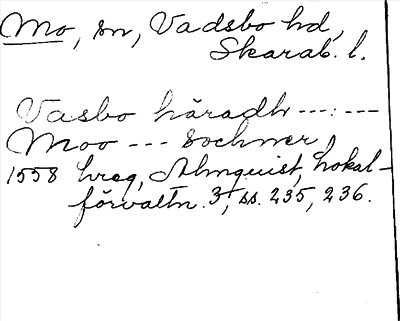 Mo, sn, Vadsbo hd,
Skarab. l.
Vasbo häradh ---:---
Moo --- Sochner,
1558 hreg, Almquist, Lokal-
förvaltn. 3, ss. 235, 236.